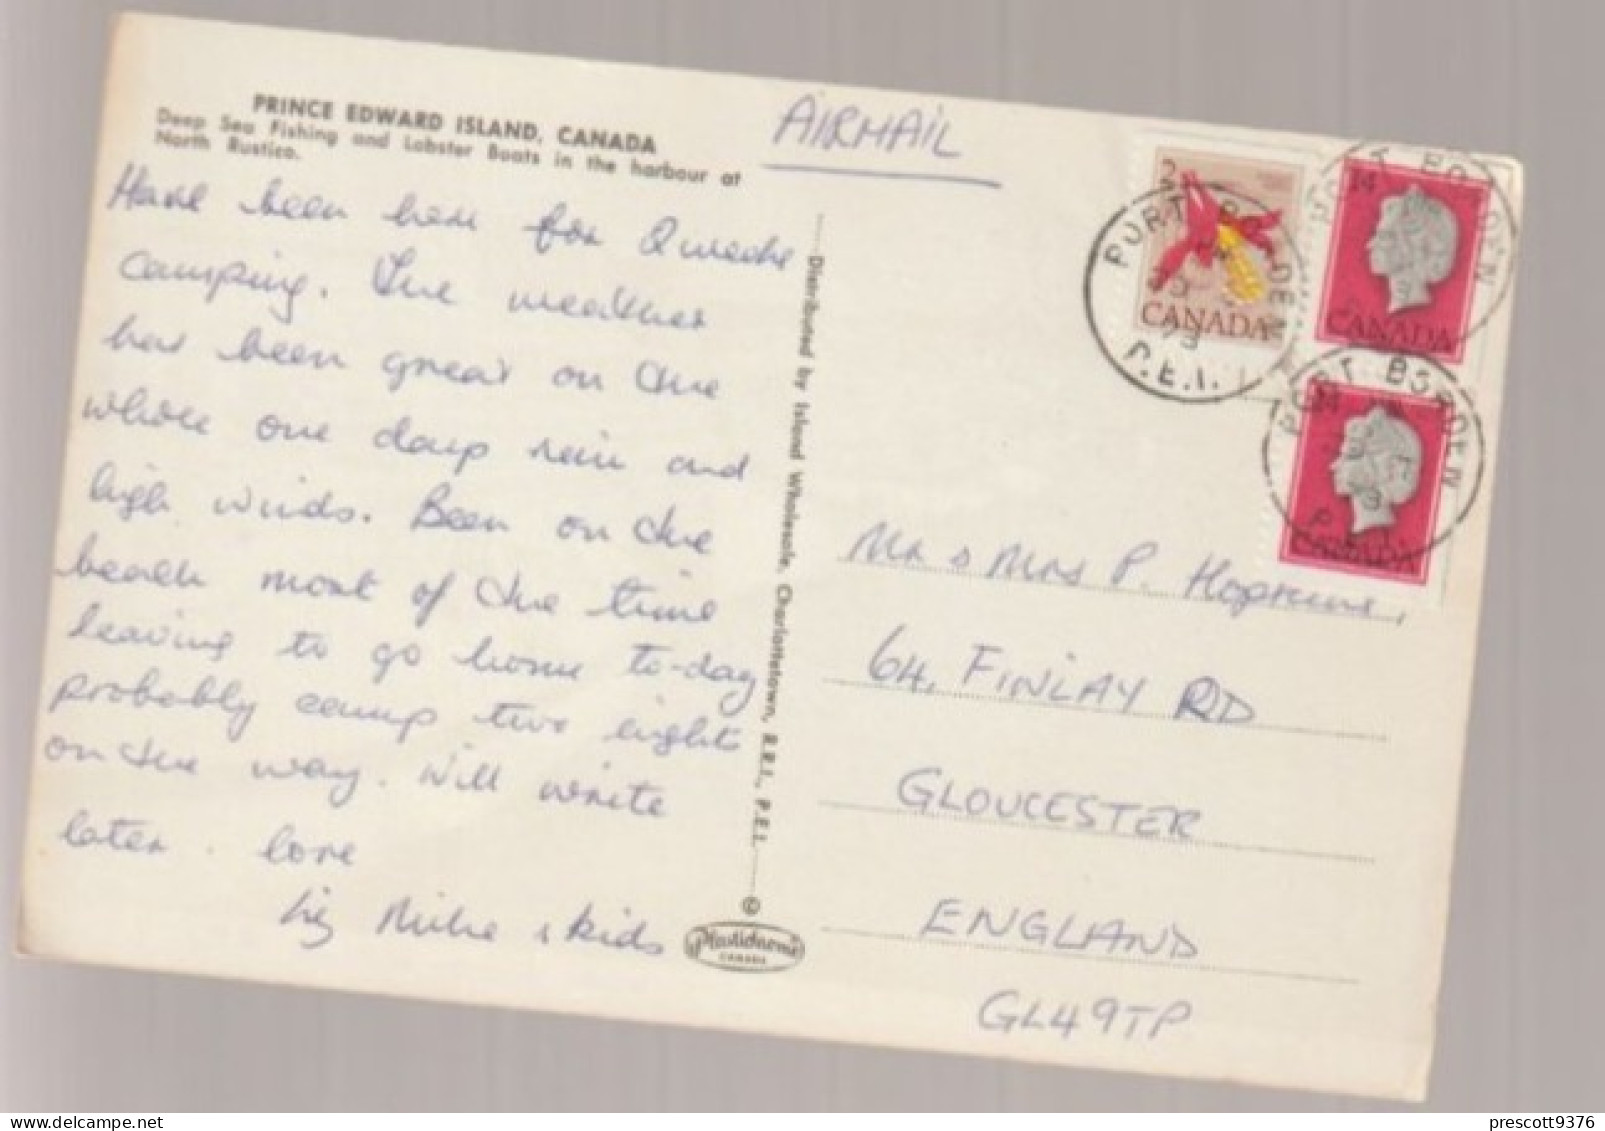 PRINCE EDWARD ISLAND, CANADA
Deep Sea Fishing and Lobster Boats in the harbour at
North Rustico.
AIRMAIL
Have been here for 2 weeks
camping. The weather
has been great on the
whole one days rain and
high winds. Been on the
beach most of the time
leaving to go home to-day
probably camp two nights
on the way. Will write
later. love
Liz Mike & kids
Distributed by Island Wholesale, Charlottetown, R.R.1., P.E.I.
©
Plastichrome
CANADA
2
CANADA
PORT BORDEN
P.E.I.
14
CANADA
PORT BORDEN
14
CANADA
PORT BORDEN
P.E.I.
Mr & Mrs P. Hopkins,
64, FINLAY RD
GLOUCESTER
ENGLAND
GL49TP
prescott9376